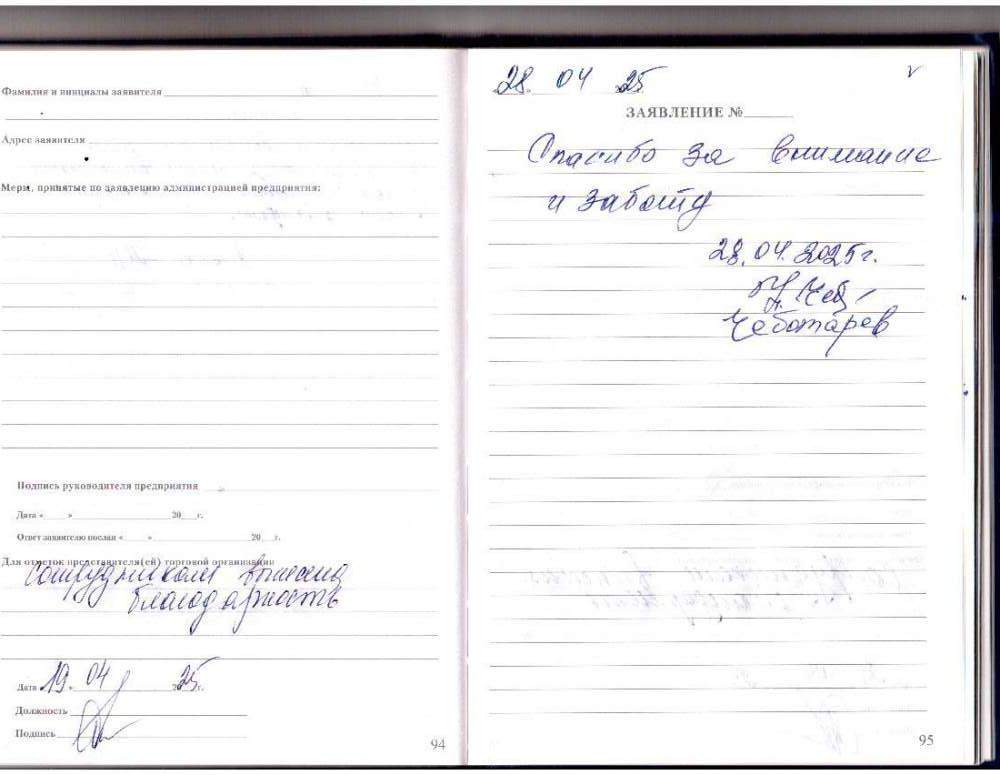 Фамилия и инициалы заявителя
Адрес заявителя
Меры, принятые по заявлению администрацией предприятия:
Подпись руководителя предприятия
Дата « » 20 г.
Ответ заявителю послан « » 20 г.
Для отметок представителя(ей) торговой организации
Сотрудникам вынесена
благодарность
Дата 19 04 2025 г.
Должность
Подпись
94
28. 04 25.
ЗАЯВЛЕНИЕ №
Спасибо за внимание
и заботу
28.04.2025г.
Чеботарев
95